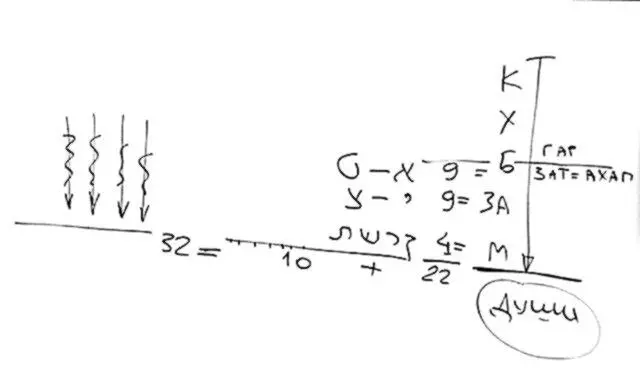 К
Х
ט – א 9 = Б ГАР
ЗАТ = АХАП
צ – י 9 = ЗА
קרשת 4 = М
32 = 10 + 22
души